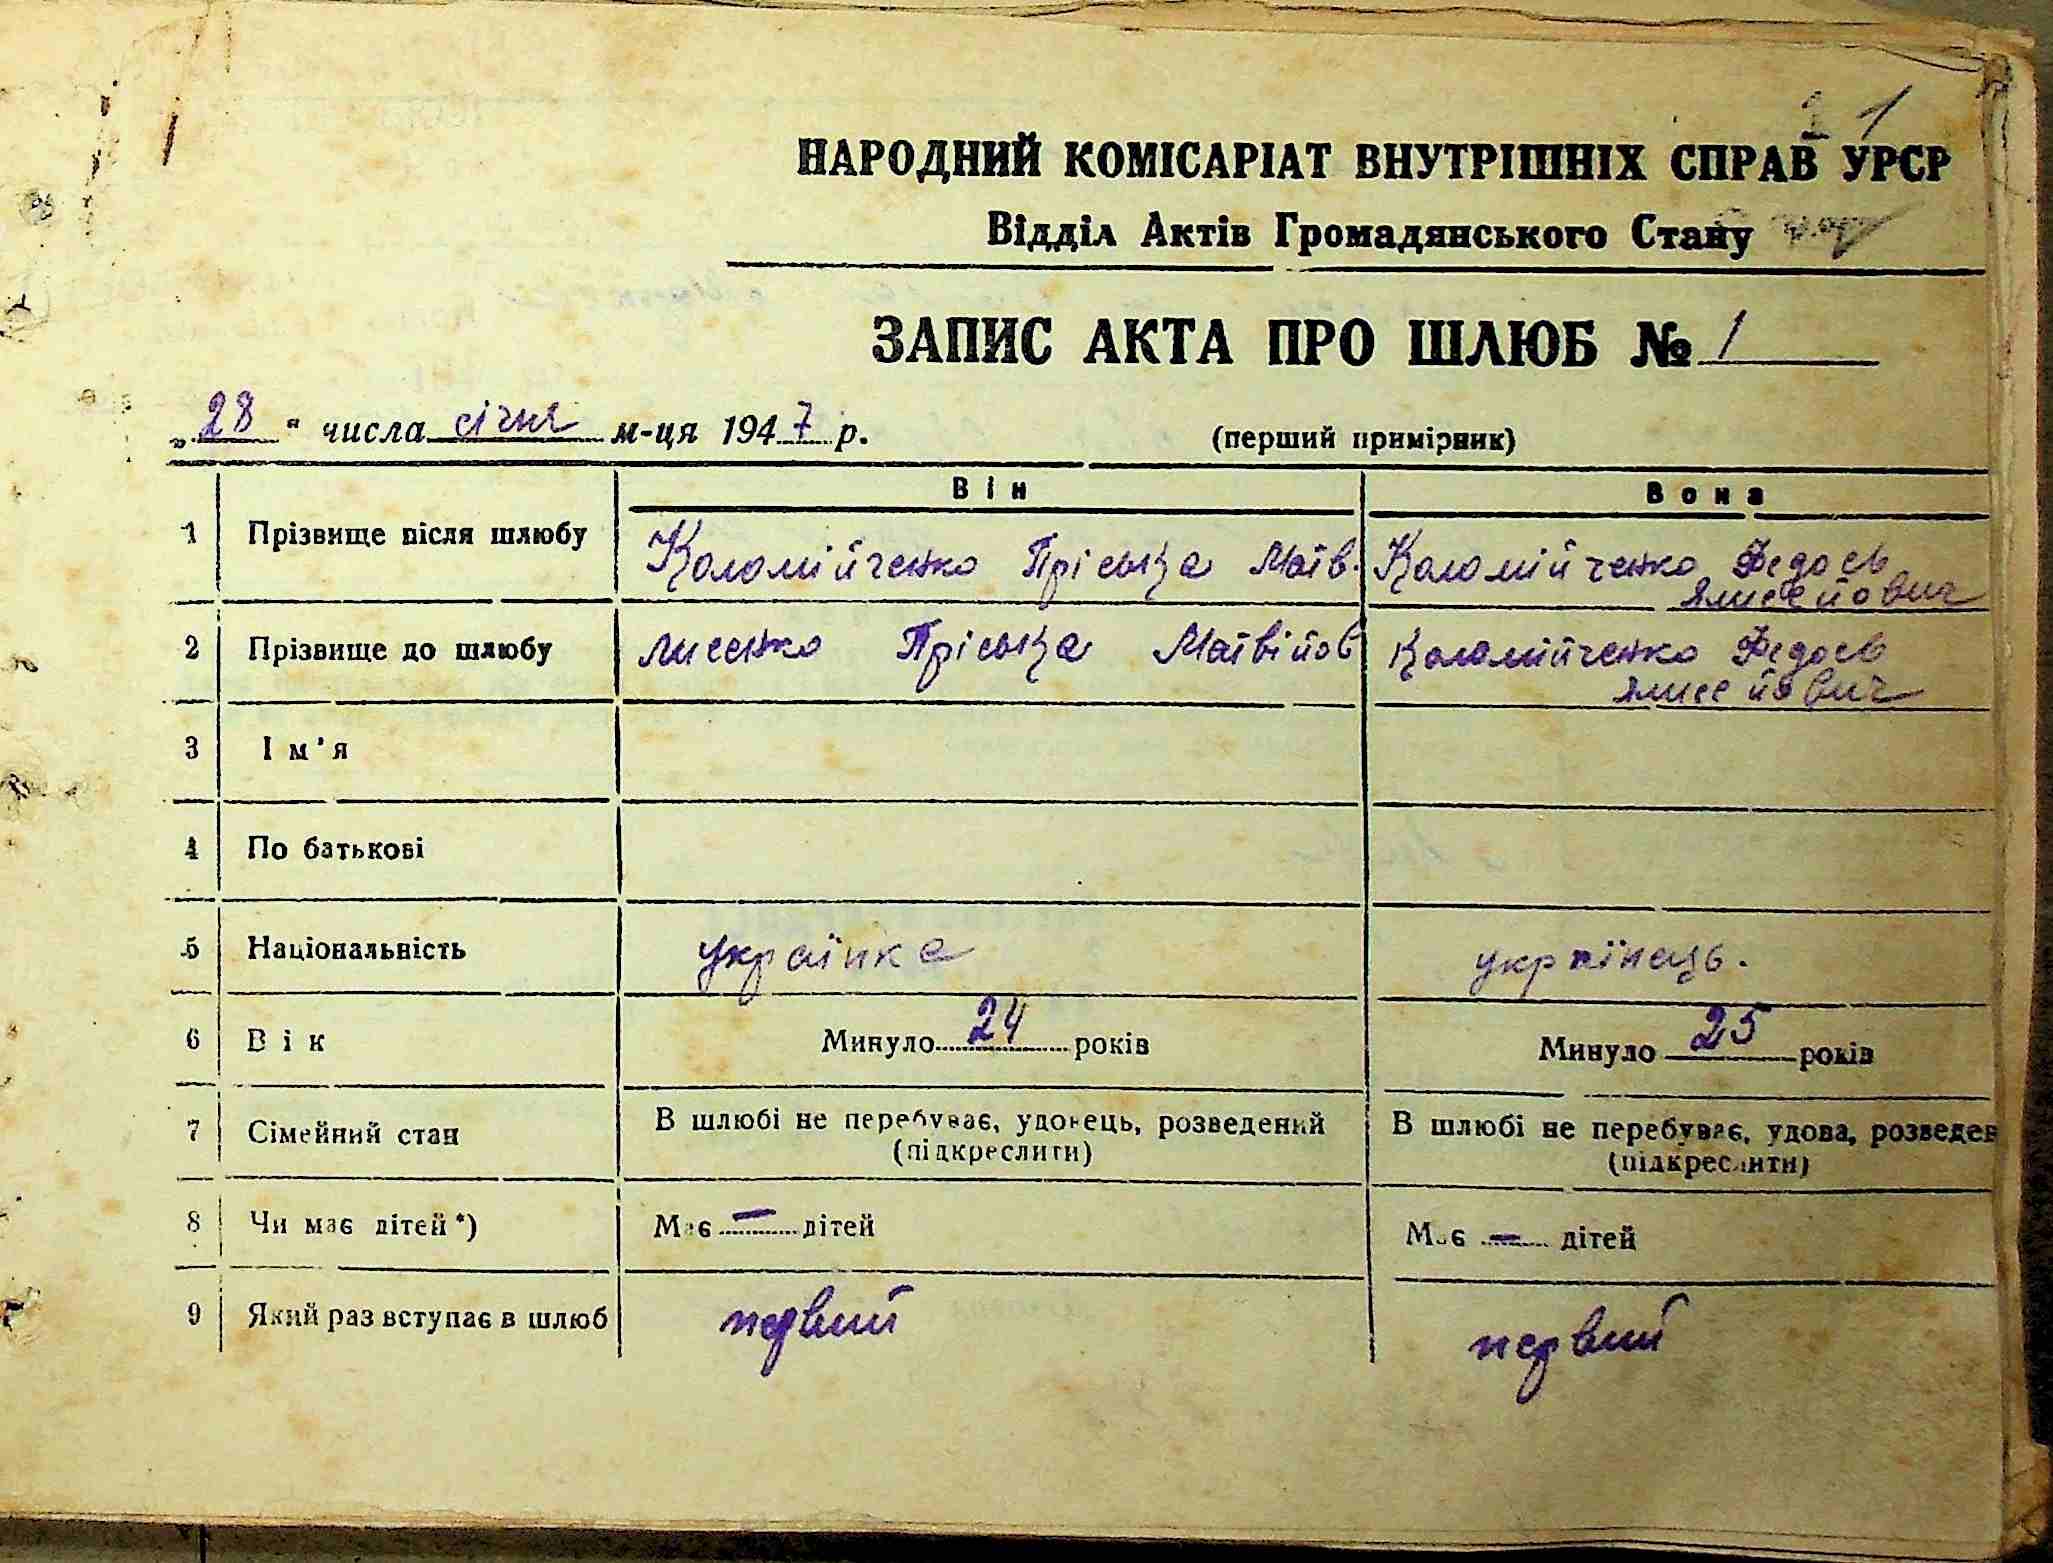 2 1
НАРОДНИЙ КОМІСАРІАТ ВНУТРІШНІХ СПРАВ УРСР
Відділ Актів Громадянського Стану
ЗАПИС АКТА ПРО ШЛЮБ № 1
„28" числа січня м-ця 1947 р. (перший примірник)
Він Вона
1 Прізвище після шлюбу Коломійченко Пріська Матв. Коломійченко Федось
Ялисейович
2 Прізвище до шлюбу Лисенко Пріська Матвійов Коломійченко Федось
Ялисейович
3 Ім'я
4 По батькові
5 Національність українка українець.
6 Вік Минуло 24 років Минуло 25 років
7 Сімейний стан В шлюбі не перебуває, удовець, розведений В шлюбі не перебуває, удова, розведен
(підкреслити) (підкреслити)
8 Чи має дітей*) Має — дітей Має — дітей
9 Який раз вступає в шлюб первий первий